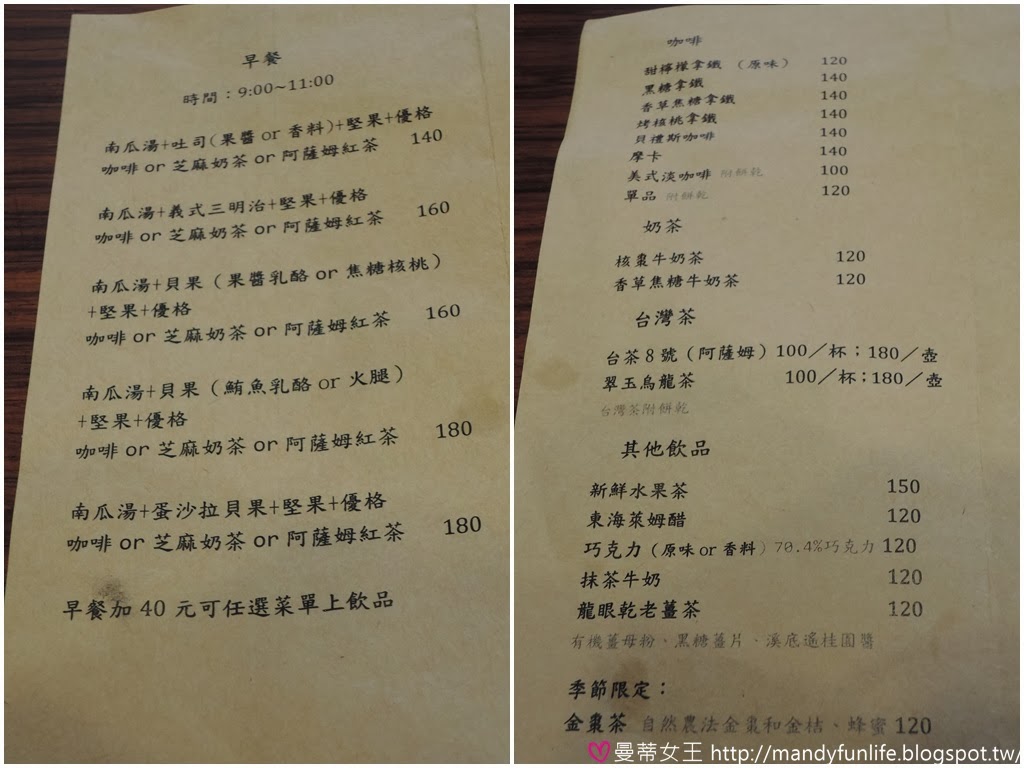 早餐
時間：9:00~11:00
南瓜湯+吐司(果醬 or 香料)+堅果+優格
咖啡 or 芝麻奶茶 or 阿薩姆紅茶 140
南瓜湯+義式三明治+堅果+優格
咖啡 or 芝麻奶茶 or 阿薩姆紅茶 160
南瓜湯+貝果（果醬乳酪 or 焦糖核桃）
+堅果+優格
咖啡 or 芝麻奶茶 or 阿薩姆紅茶 160
南瓜湯+貝果（鮪魚乳酪 or 火腿）
+堅果+優格
咖啡 or 芝麻奶茶 or 阿薩姆紅茶 180
南瓜湯+蛋沙拉貝果+堅果+優格
咖啡 or 芝麻奶茶 or 阿薩姆紅茶 180
早餐加 40 元可任選菜單上飲品
咖啡
甜檸檬拿鐵 （原味） 120
黑糖拿鐵 140
香草焦糖拿鐵 140
烤核桃拿鐵 140
貝禮斯咖啡 140
摩卡 140
美式淡咖啡 附餅乾 100
單品 附餅乾 120
奶茶
核棗牛奶茶 120
香草焦糖牛奶茶 120
台灣茶
台茶 8 號（阿薩姆）100／杯；180／壺
翠玉烏龍茶 100／杯；180／壺
台灣茶附餅乾
其他飲品
新鮮水果茶 150
東海萊姆醋 120
巧克力（原味 or 香料）70.4%巧克力 120
抹茶牛奶 120
龍眼乾老薑茶 120
有機薑母粉、黑糖薑片、溪底遙桂圓醬
季節限定：
金棗茶 自然農法金棗和金桔、蜂蜜 120
♡曼蒂女王 http://mandyfunlife.blogspot.tw/